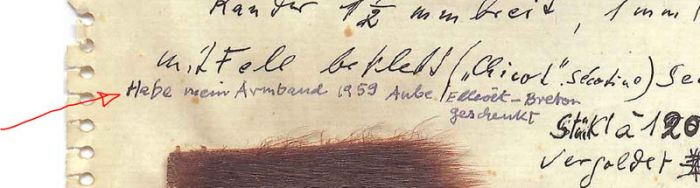 Rander 1½ mm breit, 1 mm
mit Fell beklebt ("Chicot". Sécotine) Se
Habe mein Armband 1959 Aube Elléöit-Breton
geschenkt
Stück à 120
vergoldet